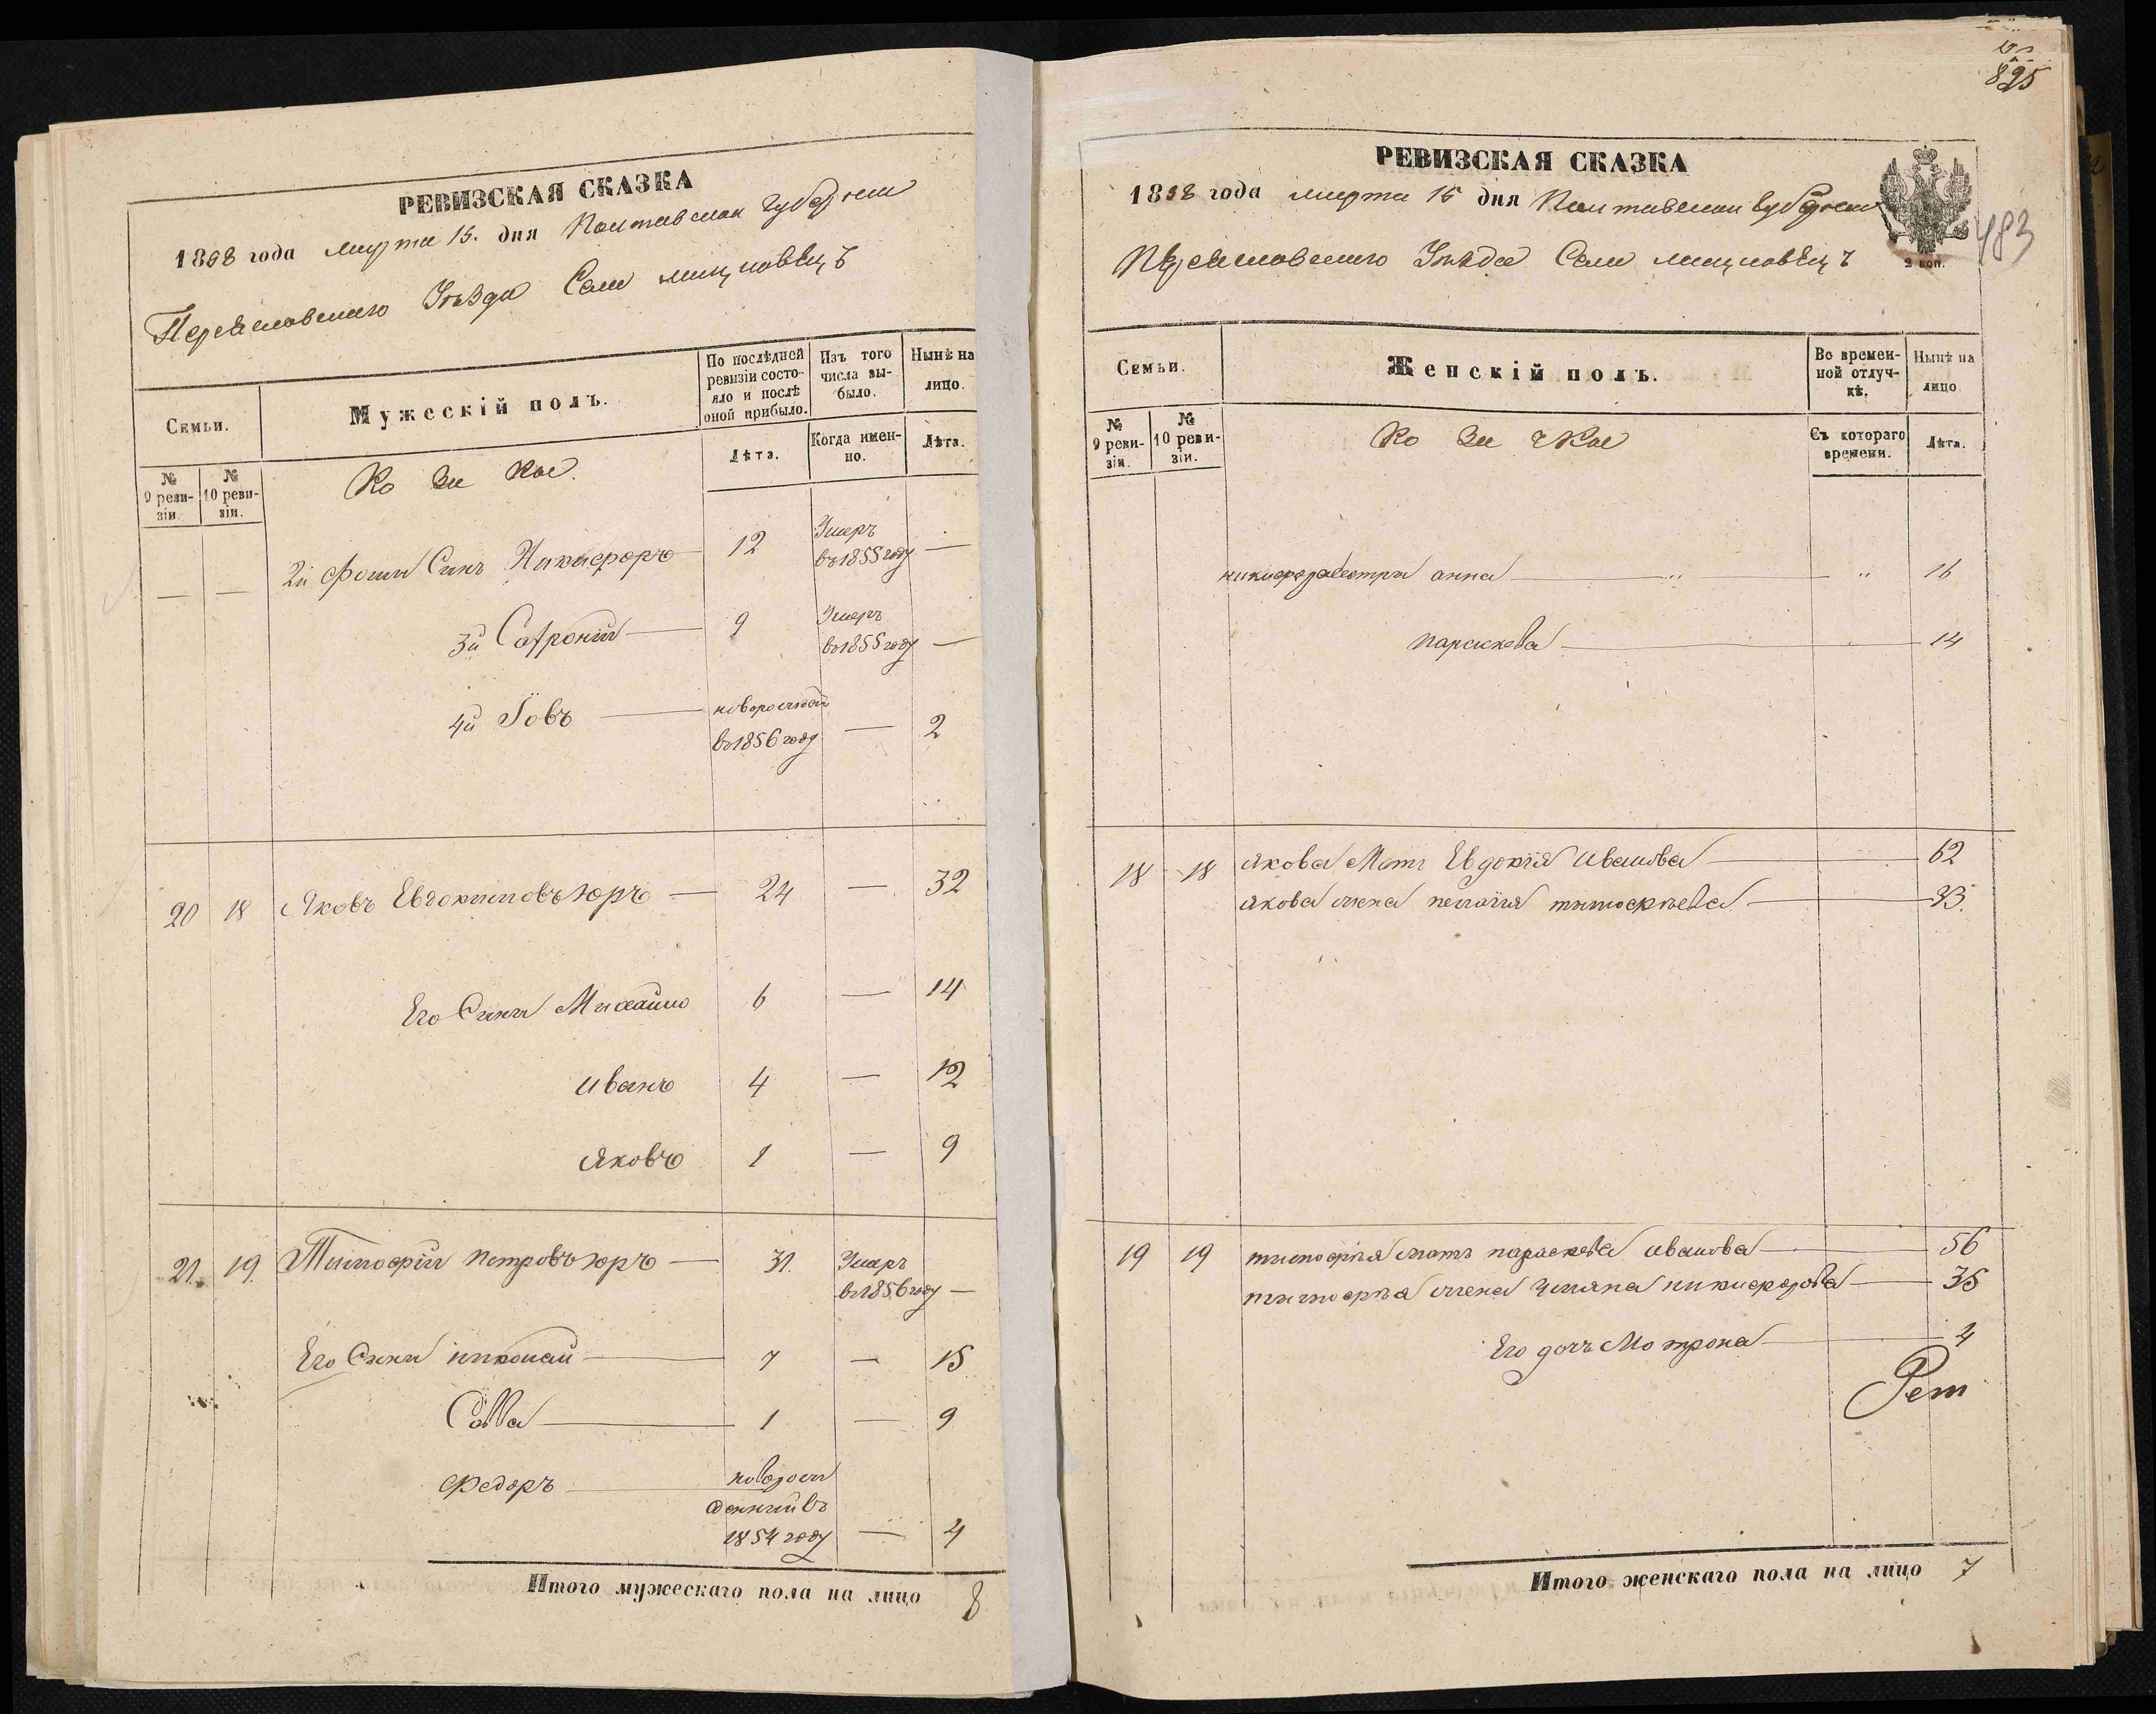 РЕВИЗСКАЯ СКАЗКА
1858 года марта 15. дня Полтавской губернии
Переяславского Уѣзда Села
Семьи.
Мужескій полъ.
По послѣдней ревизіи состояло и послѣ оной прибыло.
Изъ того числа выбыло.
Нынѣ на лицо.
№ 9 ревизіи.
№ 10 ревизіи.
Козаки.
Лѣта.
Когда именно.
Лѣта.
— — 2й Фомы Синъ Никифоръ — 12 Умеръ въ 1855 году —
3й Софроній — 9 Умеръ въ 1855 году —
4й Іовъ — новорожденъ въ 1856 году — 2
20 18 Яковъ Евдокимовъ Юръ — 24 — 32
Его Сини Михайло 6 — 14
Иванъ 4 — 12
Яковъ 1 — 9
21. 19. Тимофѣй Петровъ Юръ — 31. Умеръ въ 1856 году —
Его Сини Николай — 7 — 15
Савва — 1 — 9
Федоръ — новорожденный въ 1854 году — 4
Итого мужескаго пола на лицо 8
895
483
РЕВИЗСКАЯ СКАЗКА
1858 года марта 15 дня Полтавской Губернии
2 коп.
Переяславского Уѣзда Села
Семьи.
Женскій полъ.
Во временной отлучкѣ.
Нынѣ на лицо.
№ 9 ревизіи.
№ 10 ревизіи.
Козачки
Съ котораго времени.
Лѣта.
Никифора Сестри Анна — " — " 16
Параскева — 14
18 18 Якова Мать Евдокія Иванова — 62
Якова жена Пелагія Тимофѣева — 33.
19 19 Тимофѣя мать Параскева Иванова — 56
Тимофѣя жена Уляна Никифорова — 35
Его дочъ Мотрона — 4
Итого женскаго пола на лицо 7